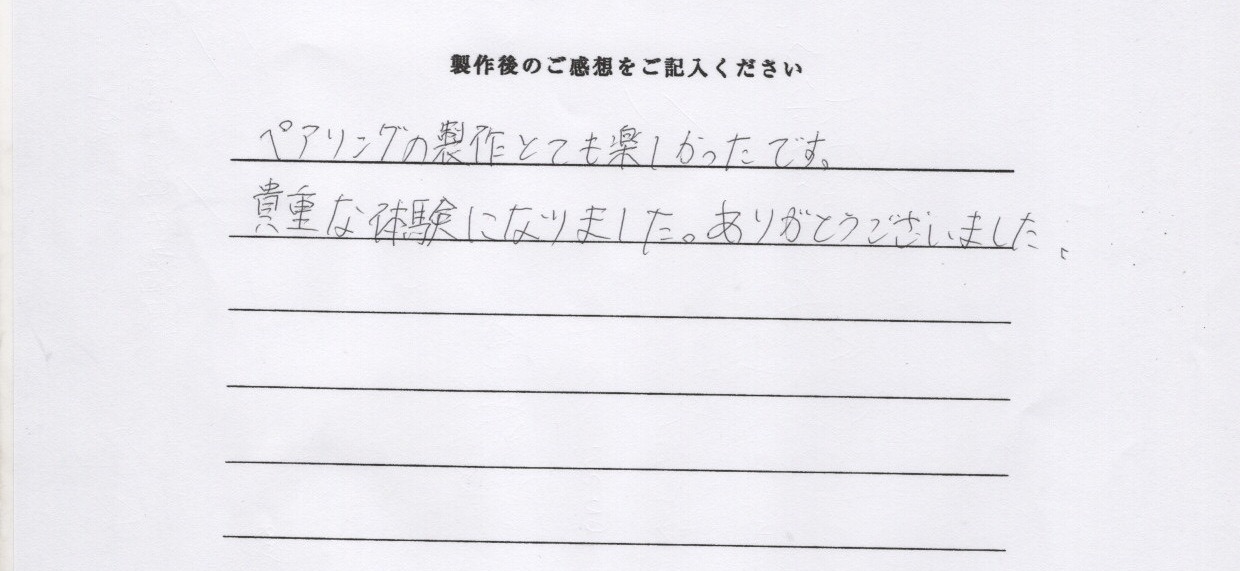 製作後のご感想をご記入ください
ペアリングの製作とても楽しかったです。
貴重な体験になりました。ありがとうございました、